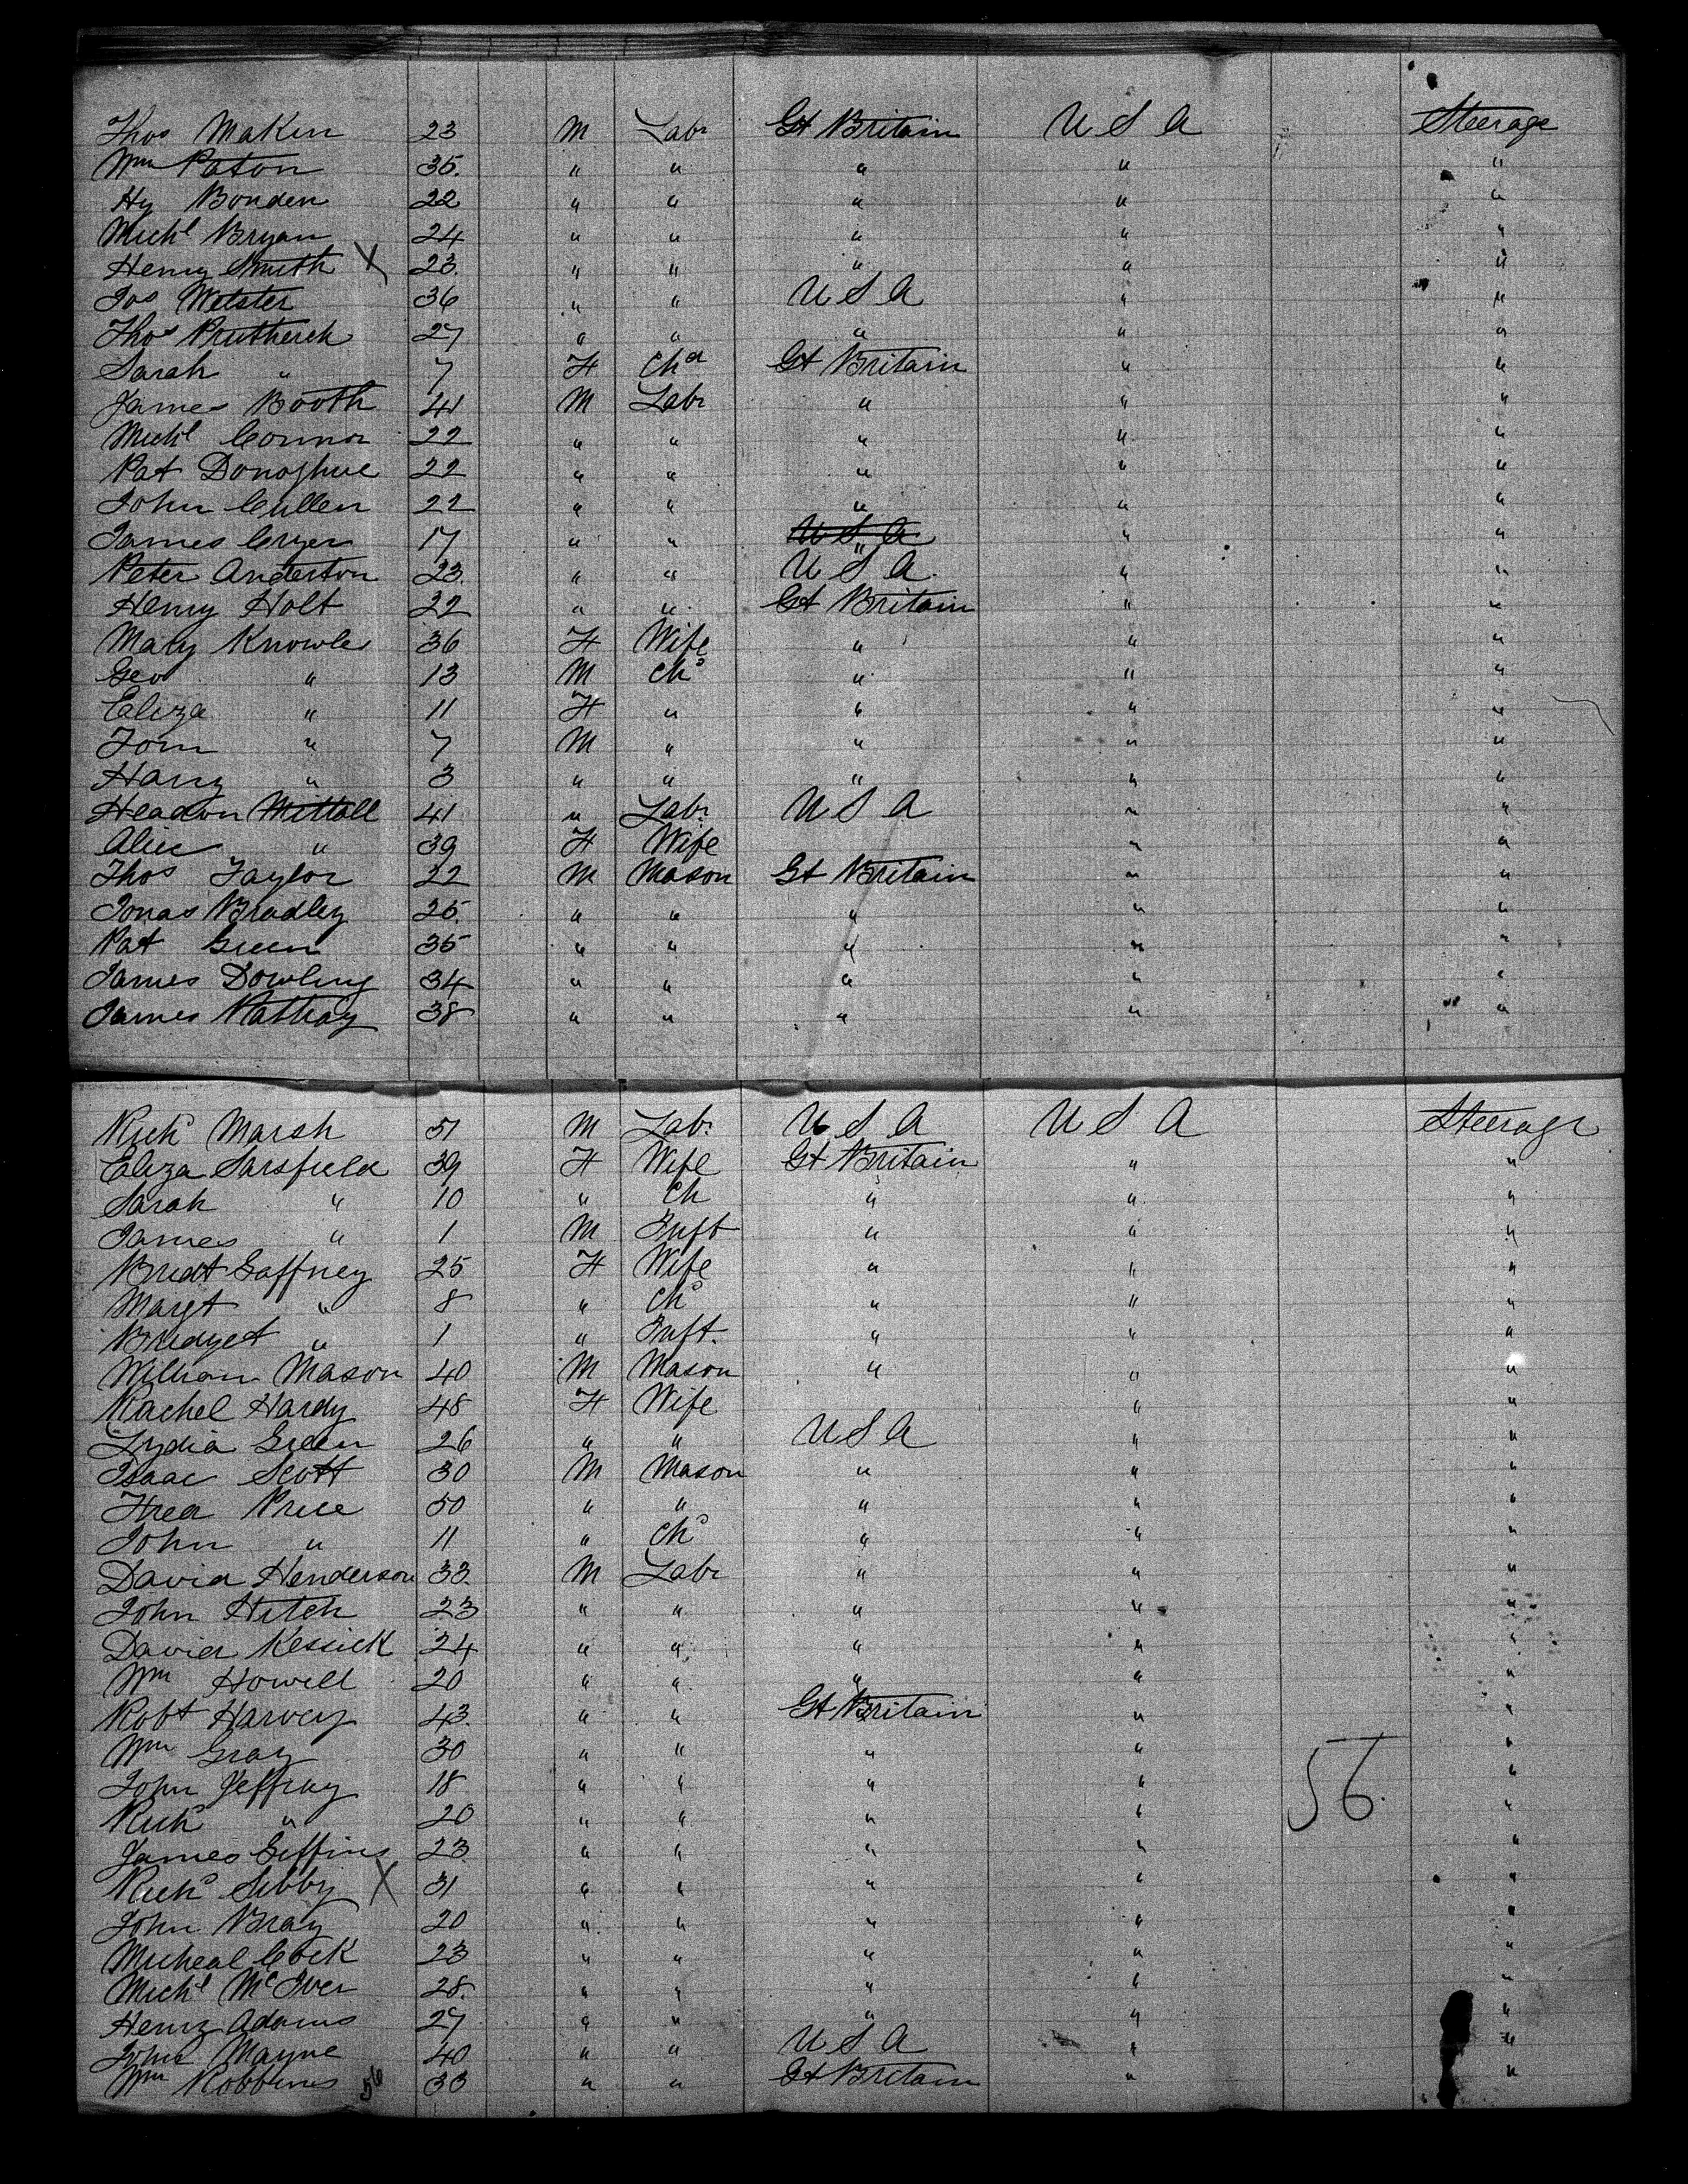 Thos Makin 23 M Labr Gt Britain U S A Steerage
Wm Paton 35. " " " " "
Hy Bonden 22 " " " " "
Michl Bryan 24 " " " " "
Henry Smith X 23. " " " " "
Jos Webster 36 " " U S A " "
Thos Prutherch 27 " " " " "
Sarah " 7 F Chd Gt Britain " "
James Booth 41 M Labr " " "
Michl Connor 22 " " " " "
Pat Donoghue 22 " " " " "
John Cullen 22 " " " " "
James Cryer 17 " " U S A " " "
Peter Anderton 23. " " U S A. " "
Henry Holt 22 " " Gt Britain " "
Mary Knowles 36 F Wife " " "
Geo " 13 M Chd " " "
Eliza " 11 F " " " "
Tom " 7 M " " " "
Harry " 3 " " " " "
Headon Mittall 41 " Labr U S A " "
Alice " 39 F Wife " "
Thos Taylor 22 M Mason Gt Britain " "
Jonas Bradley 25. " " " " "
Pat Green 35 " " " " "
James Dowling 34 " " " " "
James 38 " " " " "
Richd Marsh 51 M Labr U S A U S A Steerage
Eliza Sarsfield 39 F Wife Gt Britain " "
Sarah " 10 " Ch " " "
James " 1 M Inft " " "
Bridt Gaffney 25 F Wife " " "
Margt " 8 " Chd " " "
Bridget " 1 " Inft. " " "
William Mason 40 M Mason " " "
Rachel Hardy 48 F Wife " "
Lydia Green 26 " " U S A " "
Isaac Scott 30 M Mason " " "
Fred Price 50 " " " " "
John " 11 " Chd " " "
David Henderson 33. M Labr " " "
John Hitch 23 " " " " "
David Kessick 24 " " " " "
Wm Howell 20 " " " " "
Robt Harvey 43. " " Gt Britain " "
Wm Gray 30 " " " " "
John Jeffray 18 " " " " "
56.
Richd " 20 " " " " "
James Giffins 23 " " " " "
Richd Sibby X 31 " " " " "
John Bray 20 " " " " "
Micheal Cock 23 " " " " "
Michl McIver 28. " " " " "
Henry Adams 27 " " " " "
John Mayne 40 " " U S A " "
Wm Robbins 56 33 " " Gt Britain " "